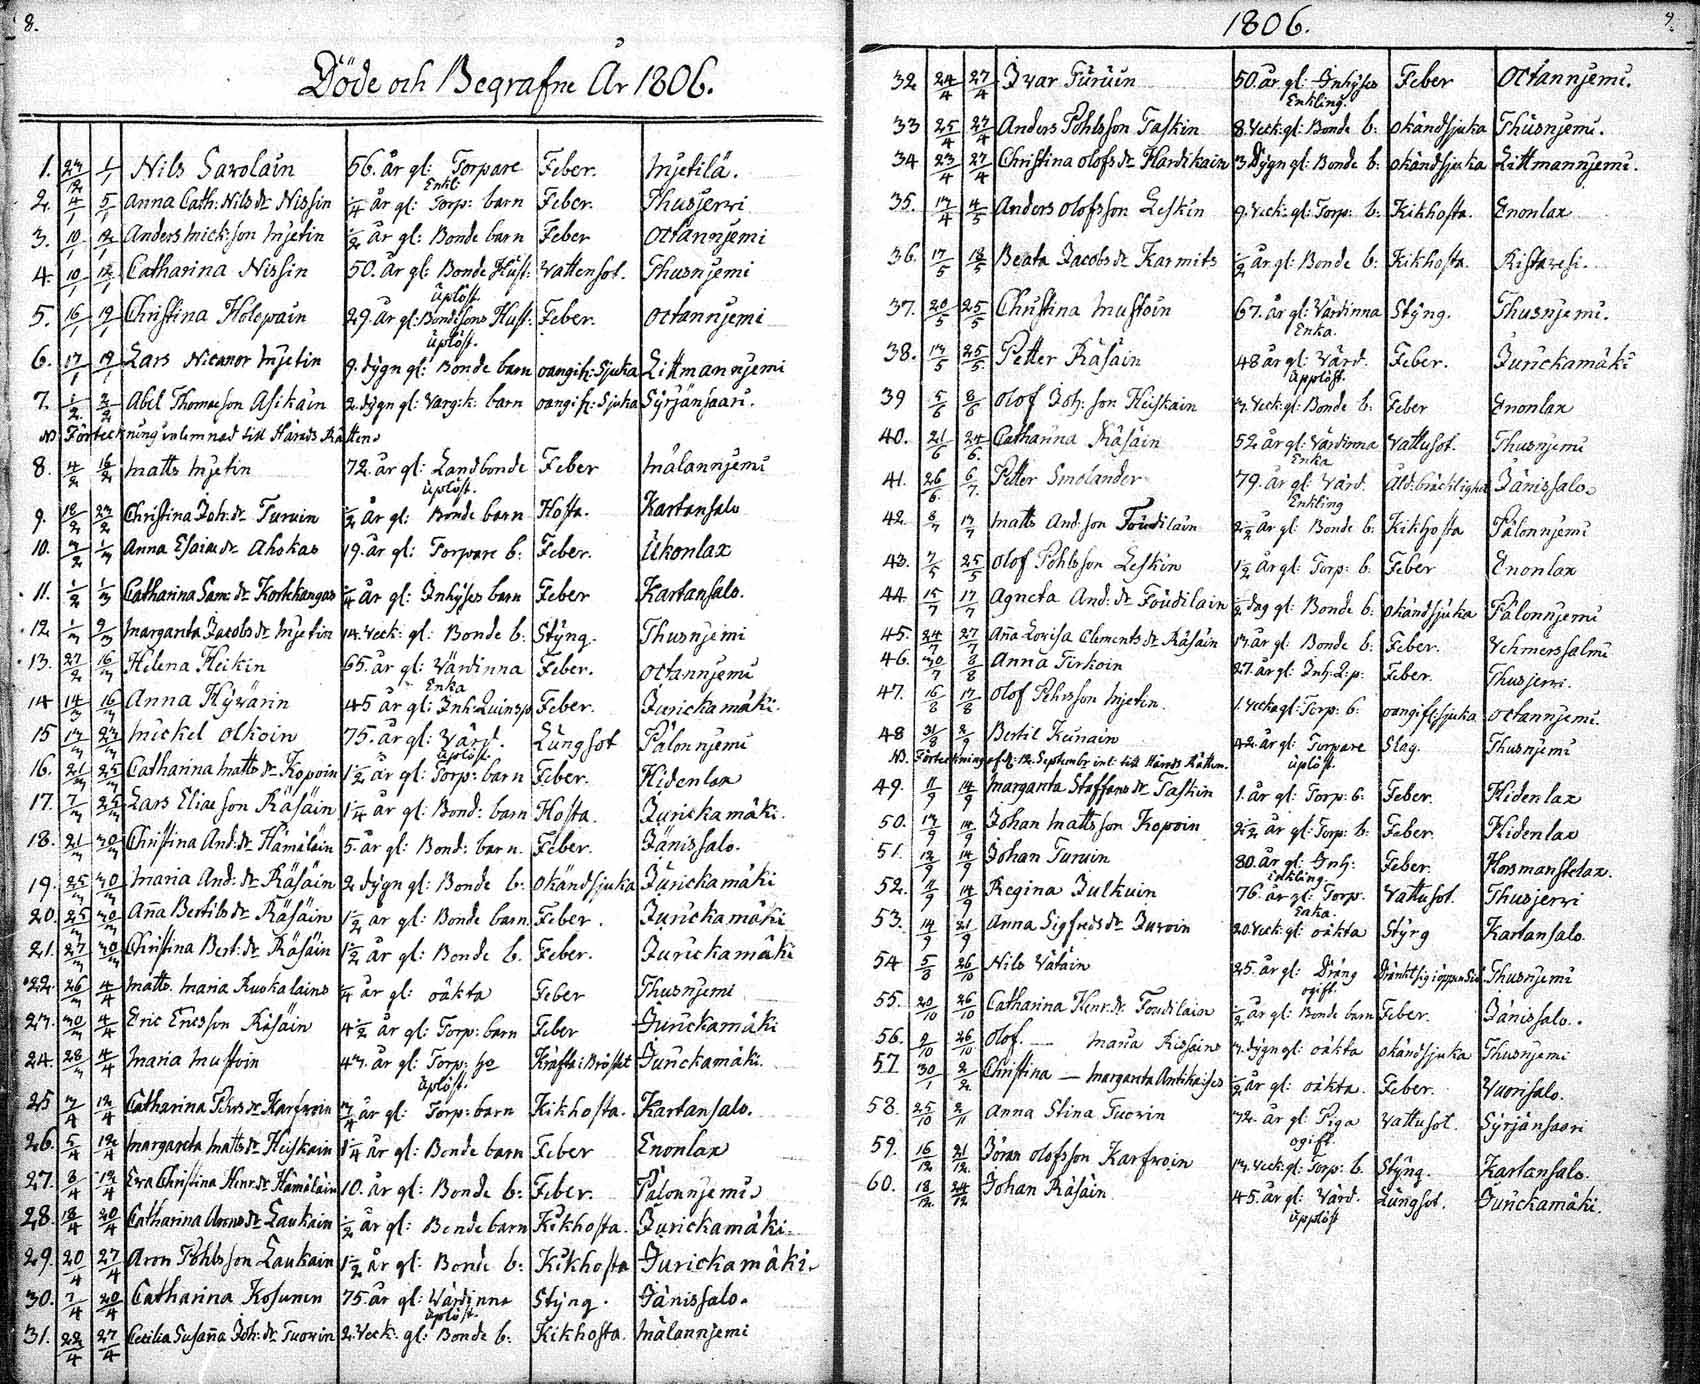 8.
Döde och Begrafne År 1806.
1. 23/12 1/1 Nils Savolain 56. år gl: Torpare Enkl: Feber. Mjetilä.
2. 4/1 5/1 Anna Cath: Nils dr Nissin 1/4 år gl: Torp: barn Feber. Thusjerwi
3. 10/1 12/1 Anders Mick: son Mjetin 1/2 år gl: Bonde barn Feber Octannjemi
4. 10/1 12/1 Catharina Nissin 50. år gl: Bonde Hust: uplöst Vattensot. Thusnjemi
5. 16/1 19/1 Christina Holepain 29. år gl: Bondesons Hust: uplöst. Feber. Octannjemi
6. 17/1 19/1 Lars Nicanor Mjetin 9. dygn gl: Bonde barn oangif: Sjuka Littmannjemi
7. 1/2 2/2 Abel Thomæson Asikain 2. dygn gl: Vargk: barn oangif: Sjuka Syrjänsaari.
NB Förteckning inlemnad till Härads Rätten
8. 4/2 16/2 Matts Mjetin 72. år gl: Landbonde uplöst. Feber Mälannjemi
9. 18/2 23/2 Christina Joh: dr Turuin 1/2 år gl: Bonde barn Hosta. Kartansalo
10. 3/2 1/3 Anna Esaiæ dr Ahokas 19. år gl: Torpare b: Feber. Ukonlax
11. 1/2 1/3 Catharina Sam: dr Kortekangas 1/4 år gl: Inhyses barn Feber Kartansalo.
12 1/3 9/3 Margareta Jacobs dr Mjetin 14. Veck: gl: Bonde b: Styng. Thusnjemi
13. 27/2 16/3 Helena Heikin 65. år gl: Värdinna Enka Feber. Octannjemi
14 14/3 16/3 Anna Hyvärin 45 år gl: Inh: Quinsp Feber. Jurickamäki.
15 13/3 23/3 Mickel Olkoin 75. år gl: Värd. uplöst. Lungsot Pälonnjemi
16. 21/3 25/3 Catharina Matts dr Kopoin 1 1/2 år gl: Torp: barn Feber. Hidenlax
17. 7/3 25/3 Lars Eliæ son Räsäin 1 1/4 år gl: Bond: barn Hosta. Jurickamäki.
18. 21/3 30/3 Christina And: dr Hämäläin 5. år gl: Bond: barn. Feber. Jänissalo.
19. 25/3 30/3 Maria And: dr Räsäin 2 dygn gl: Bonde b: okändsjuka Jurickamäki
20. 25/3 30/3 Aña Bertils dr Räsäin 1 1/2 år gl: Bonde barn Feber. Jurickamäki
21. 27/3 30/3 Christina Bert: dr Räsäin 1 1/2 år gl: Bonde b. Feber. Jurickamäki
22. 26/3 4/4 Matts. Maria Ruskalains 1/4 år gl: oäkta Feber Thusnjemi
23. 30/3 4/4 Eric Ericsson Räsäin 4 1/2 år gl: Torp: barn Feber Jurickamäki
24. 28/3 4/4 Maria Mustoin 43. år gl: Torp: uplöst. Kräfta i Bröstet Jurickamäki.
25 3/4 12/4 Catharina Pehrs dr Karfwoin 3/4 år gl: Torp: barn Kikhosta. Kartansalo.
26. 5/4 12/4 Margareta Matts dr Heiskain 1 1/4 år gl: Bonde barn Feber Enonlax
27. 8/4 12/4 Eva Christina Henr: dr Hämäläin 10. år gl: Bonde b: Feber. Pälonnjemi.
28. 18/4 20/4 Catharina Arons dr Laukain 1/2 år gl: Bonde barn Kikhosta. Jurickamäki.
29. 20/4 27/4 Aron Pohlsson Laukain 1 1/2 år gl: Bonde b: Kikhosta Jurickamäki.
30. 7/4 20/4 Catharina Kosunen 75. år gl: Värdinna uplöst. Styng. Jänissalo.
31. 22/4 27/4 Cecilia Susaña Joh: dr Tuovin 2. Veck: gl: Bonde b: Kikhosta. Mälannjemi
1806.
9.
32 24/4 27/4 Ivar Turuin 50. år gl: Inhyses Enkling. Feber Octannjemi.
33 25/4 27/4 Anders Pohlsson Taskin 8. Veck: gl: Bonde b: okändsjuka Thusnjemi.
34 23/4 27/4 Christina Olofs dr Hardikain 3 dygn gl: Bonde b: okändsjuka Littmannjemi.
35. 13/4 4/5 Anders Olofsson Leskin 9. Veck: gl: Torp: b: Kikhosta. Enonlax
36. 17/5 18/5 Beata Jacobs dr Karmits 1/2 år gl: Bonde b: Kikhosta. Ristavesi.
37. 20/5 25/5 Christina Mustoin 67. år gl: Värdinna Enka. Styng. Thusnjemi.
38. 13/5 25/5 Petter Räsäin 48 år gl: Värd. upplöst. Feber. Jurickamäki
39 5/6 8/6 Olof Joh: son Heiskain 3. Veck: gl: Bonde b: Feber Enonlax
40. 21/6 24/6 Catharina Räsäin 52. år gl: Värdinna Enka Vattusot. Thusnjemi
41. 26/6 6/7 Petter Smolander 79. år gl: Värd. Enkling Åld. bräcklighet Jänissalo.
42. 8/7 13/7 Matts And: son Toudilain 2 1/2 år gl: Bonde b: Kikhosta Pälonnjemi
43. 7/5 25/5 Olof Pohlsson Leskin 1 1/2 år gl: Torp: b: Feber Enonlax
44 15/7 17/7 Agneta And: dr Toudilain 1/2 dag gl: Bonde b: okändsjuka Pälonnjemi
45. 24/7 27/7 Aña Lovisa Clements dr Räsäin 13. år gl: Bonde b: Feber. Vehmerssalmi
46. 30/7 8/8 Anna Tirkoin 27. år gl: Inh: Q:p: Feber. Thusjerwi.
47. 16/8 17/8 Olof Pehrsson Mjetin. 1. Vecka gl: Torp: b: oangift: sjuka Octannjemi.
48 31/8 2/9 Bertil Keinain 42. år gl: Torpare uplöst. Slag. Thusnjemi
NB. Förteckning af d: 12. Septembr int: till Härads Rätten.
49. 11/9 14/9 Margareta Staffans dr Taskin 1. år gl: Torp: b: Feber. Hidenlax
50. 13/9 14/9 Johan Mattsson Kopoin 2 1/2 år gl: Torp: b: Feber. Hidenlax
51. 12/9 14/9 Johan Turuin 80. år gl: Inh: Enkling. Feber. Hosmanstelax.
52. 11/9 14/9 Regina Julkuin 76. år gl: Torp. Enka. Vattusot. Thusjerwi
53. 14/9 21/9 Anna Sigfreds dr Juvoin 20. Veck: gl: oäkta Styng Kartansalo.
54 5/8 26/10 Nils Vätäin 25. år gl: Dräng ogift. Dränkt sig i öppen Sjö Thusnjemi
55. 20/10 26/10 Catharina Henr: dr Toudilain 1/2 år gl: Bonde barn Feber. Jänissalo.
56. 9/10 26/10 Olof. — Maria Rissains 3. dygn gl: oäkta okändsjuka Thusnjemi
57. 30/1 2/2 Christina — Margareta Antikaises 1/2 år gl: oäkta. Feber. Vuorisalo.
58. 25/10 2/11 Anna Stina Tuovin 72. år gl: Piga ogift. Vattusot. Syrjänsaari
59. 16/12 21/12. Göran Olofsson Karfwoin 13. Veck: gl: Torp: b. Styng. Kartansalo.
60. 18/12. 24/12 Johan Räsäin 45. år gl: Värd. upplöst Lungsot. Jurickamäki.